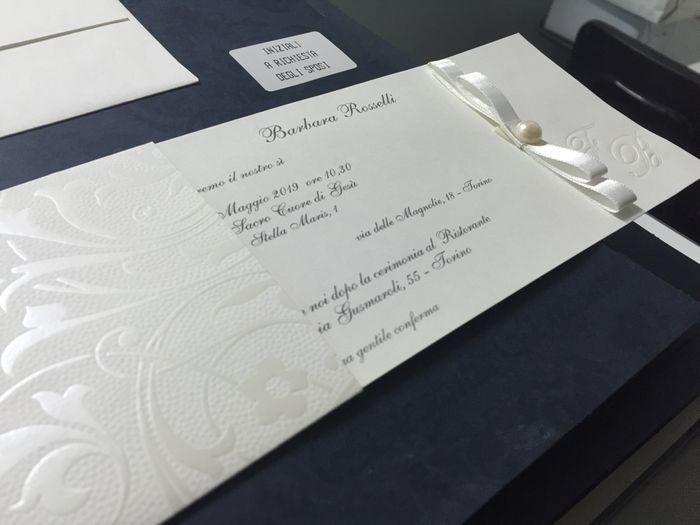 INIZIALI
A RICHIESTA
DEGLI SPOSI
Barbara Rosselli
remo il nostro sì
Maggio 2019 ore 10,30
Sacro Cuore di Gesù
Stella Maris, 1
via delle Magnolie, 18 - Torino
noi dopo la cerimonia al Ristorante
ia Gusmaroli, 55 - Torino
ra gentile conferma
F B